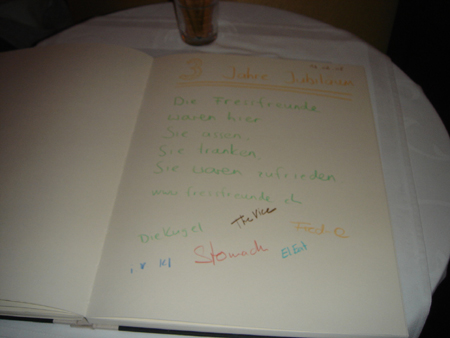 3 Jahre Jubiläum
Die Fressfreunde
waren hier
Sie assen,
Sie tranken,
Sie waren zufrieden
www.fressfreunde.ch
Die Kugel
The Vice
Stomach